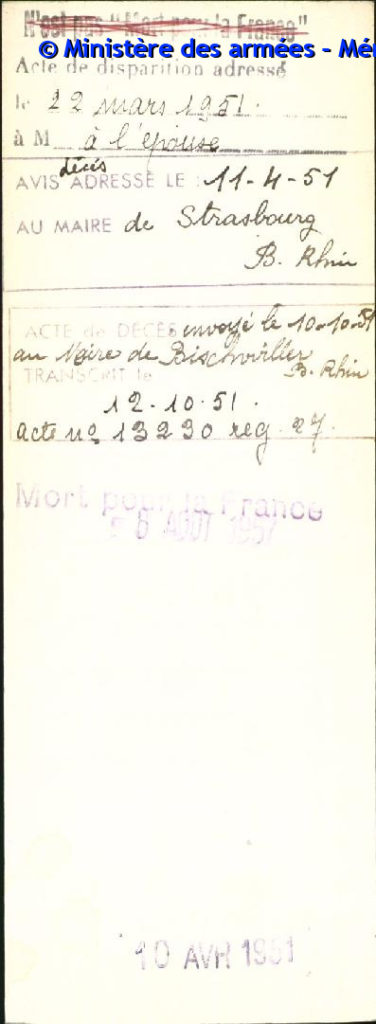 N'est pas "Mort pour la France"
© Ministère des armées - Mé
Acte de disparition adressé
le 22 mars 1951.
à M à l'épouse
décès
AVIS ADRESSÉ LE : 11-4-51
AU MAIRE de Strasbourg
B. Rhin
ACTE de DECES envoyé le 10-10-51
au Maire de Bischwiller
TRANSCRIT le B. Rhin
12.10.51.
acte nº 13230 reg. 27.
Mort pour la France
AOUT 1957
10 AVR 1951